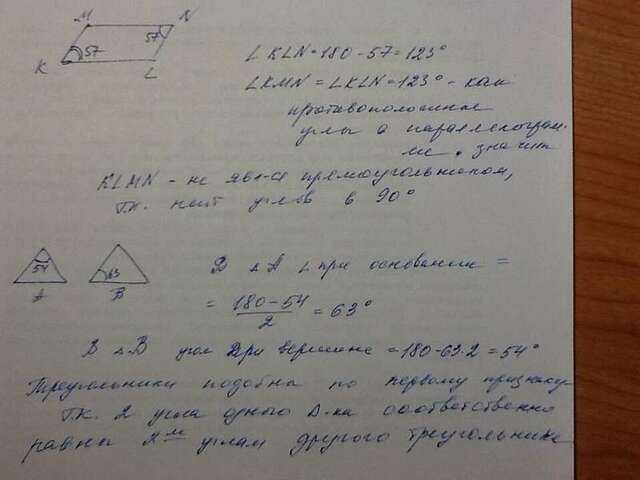 M N
57
K 57
L
∠KLN=180-57=123°
∠KMN=∠KLN=123° - как
противоположные
углы в параллелограм-
ме, значит
KLMN - не явл-ся прямоугольником,
т.к. нет углов в 90°
54
63
A B
В ΔA ∠ при основании =
= 180-54
2
= 63°
В ΔB угол при вершине =180-63·2=54°
Треугольники подобна по первому признаку
т.к. 2 угла одного Δ-ка соответственно
равны 2м углам другого треугольника